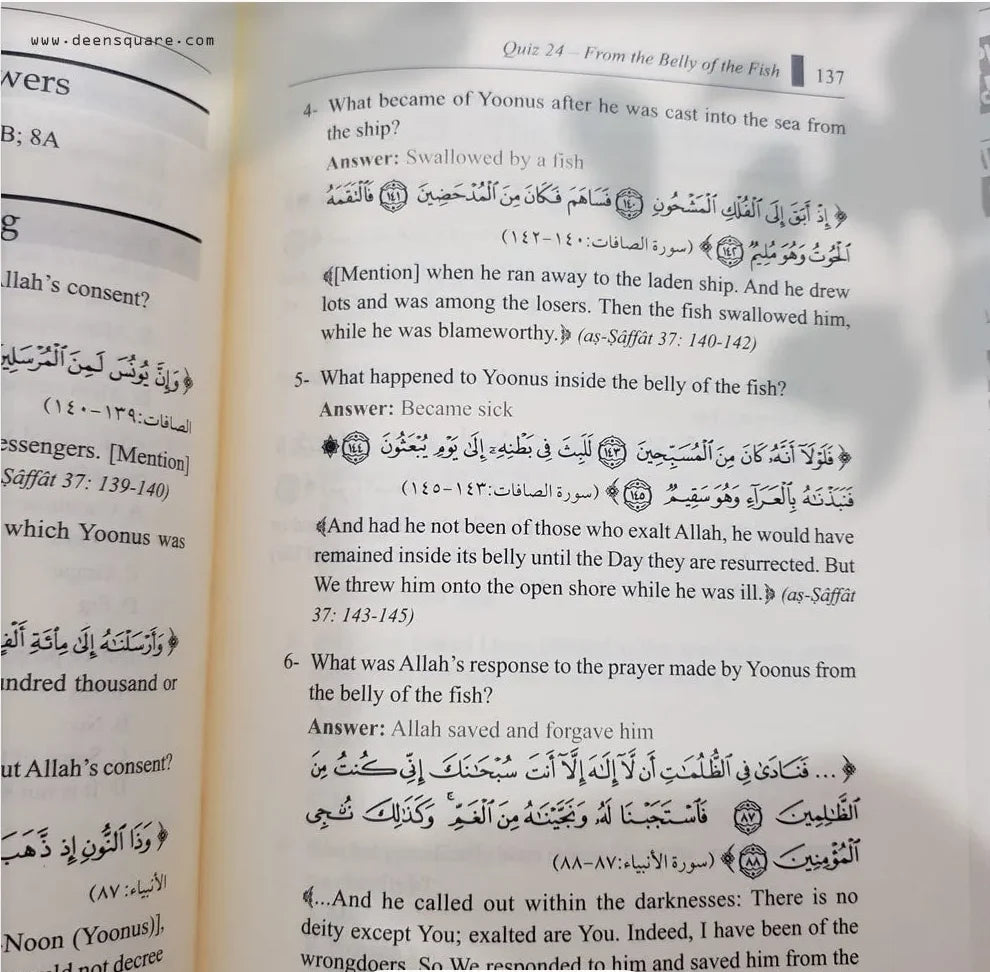 www.deensquare.com
wers
B; 8A
g
llah's consent?
﴿وَإِنَّ يُونُسَ لَمِنَ ٱلْمُرْسَلِينَ
الصافات: ١٣٩-١٤٠)
essengers. [Mention]
Ṣâffât 37: 139-140)
which Yoonus was
﴿وَأَرْسَلْنَٰهُ إِلَىٰ مِا۟ئَةِ أَلْفٍ
undred thousand or
ut Allah's consent?
﴿وَذَا ٱلنُّونِ إِذ ذَّهَبَ
الأنبياء: ٨٧)
-Noon (Yoonus)],
uld not decree
Quiz 24 – From the Belly of the Fish 137
4- What became of Yoonus after he was cast into the sea from
the ship?
Answer: Swallowed by a fish
﴿إِذْ أَبَقَ إِلَى ٱلْفُلْكِ ٱلْمَشْحُونِ ١٤٠ فَسَاهَمَ فَكَانَ مِنَ ٱلْمُدْحَضِينَ ١٤١ فَٱلْتَقَمَهُ
ٱلْحُوتُ وَهُوَ مُلِيمٌ ١٤٢﴾ (سورة الصافات: ١٤٠-١٤٢)
﴾[Mention] when he ran away to the laden ship. And he drew
lots and was among the losers. Then the fish swallowed him,
while he was blameworthy.﴿ (aṣ-Ṣâffât 37: 140-142)
5- What happened to Yoonus inside the belly of the fish?
Answer: Became sick
﴿فَلَوْلَآ أَنَّهُۥ كَانَ مِنَ ٱلْمُسَبِّحِينَ ١٤٣ لَلَبِثَ فِى بَطْنِهِۦٓ إِلَىٰ يَوْمِ يُبْعَثُونَ ١٤٤
فَنَبَذْنَٰهُ بِٱلْعَرَآءِ وَهُوَ سَقِيمٌ ١٤٥﴾ (سورة الصافات: ١٤٣-١٤٥)
﴾And had he not been of those who exalt Allah, he would have
remained inside its belly until the Day they are resurrected. But
We threw him onto the open shore while he was ill.﴿ (aṣ-Ṣâffât
37: 143-145)
6- What was Allah's response to the prayer made by Yoonus from
the belly of the fish?
Answer: Allah saved and forgave him
﴿... فَنَادَىٰ فِى ٱلظُّلُمَٰتِ أَن لَّآ إِلَٰهَ إِلَّآ أَنتَ سُبْحَٰنَكَ إِنِّى كُنتُ مِنَ
ٱلظَّٰلِمِينَ ٨٧ فَٱسْتَجَبْنَا لَهُۥ وَنَجَّيْنَٰهُ مِنَ ٱلْغَمِّ ۚ وَكَذَٰلِكَ نُۨجِى
ٱلْمُؤْمِنِينَ ٨٨﴾ (سورة الأنبياء: ٨٧-٨٨)
﴾...And he called out within the darknesses: There is no
deity except You; exalted are You. Indeed, I have been of the
wrongdoers. So We responded to him and saved him from the